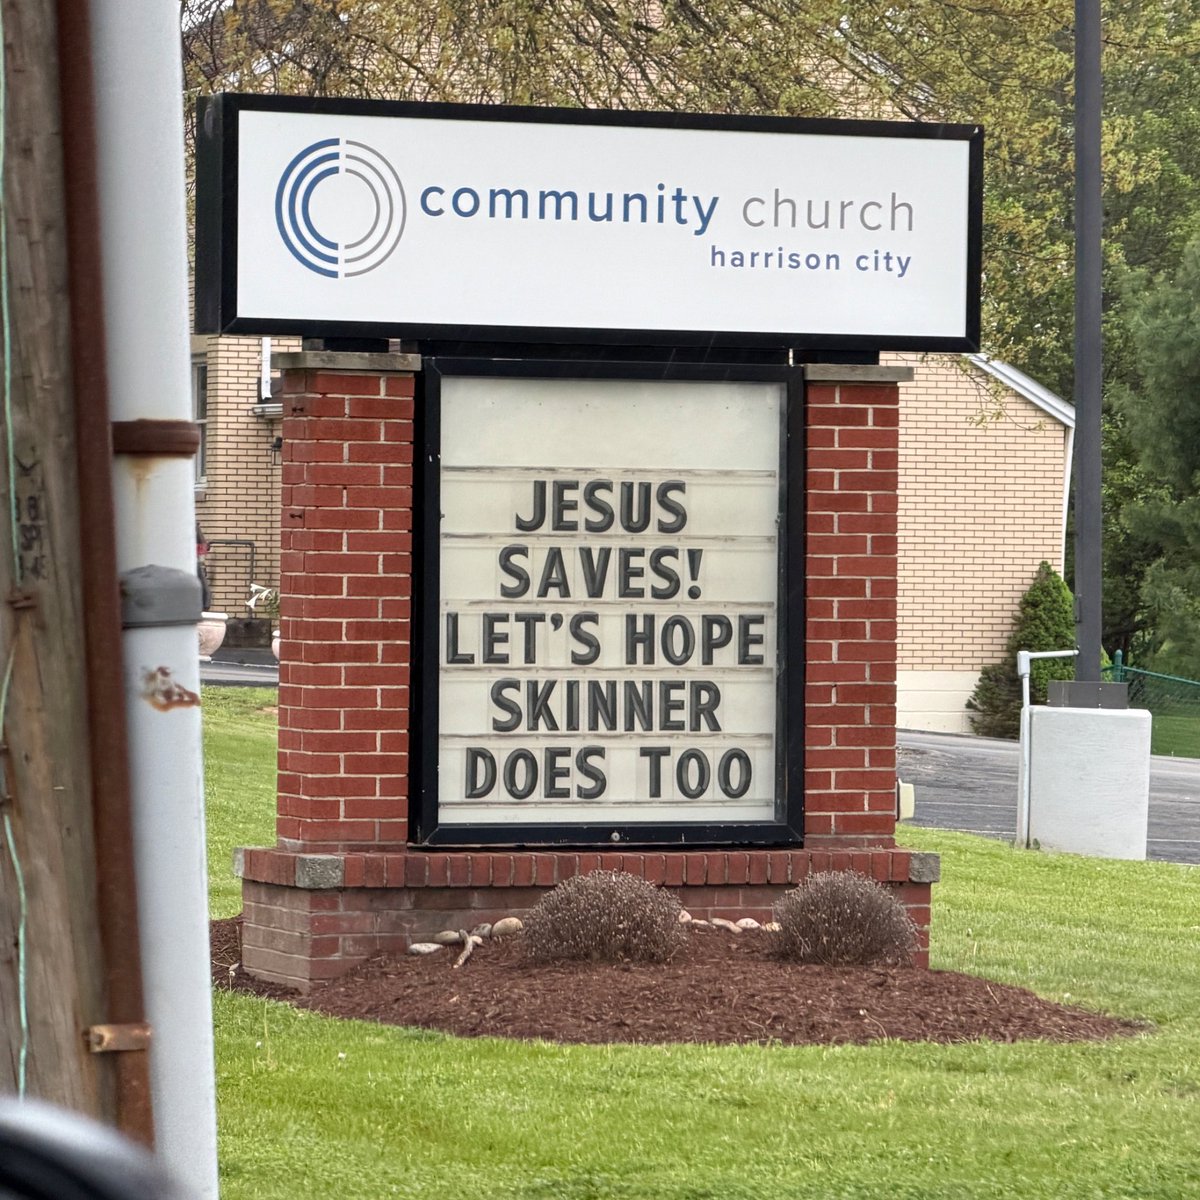 community church
harrison city
JESUS
SAVES!
LET'S HOPE
SKINNER
DOES TOO